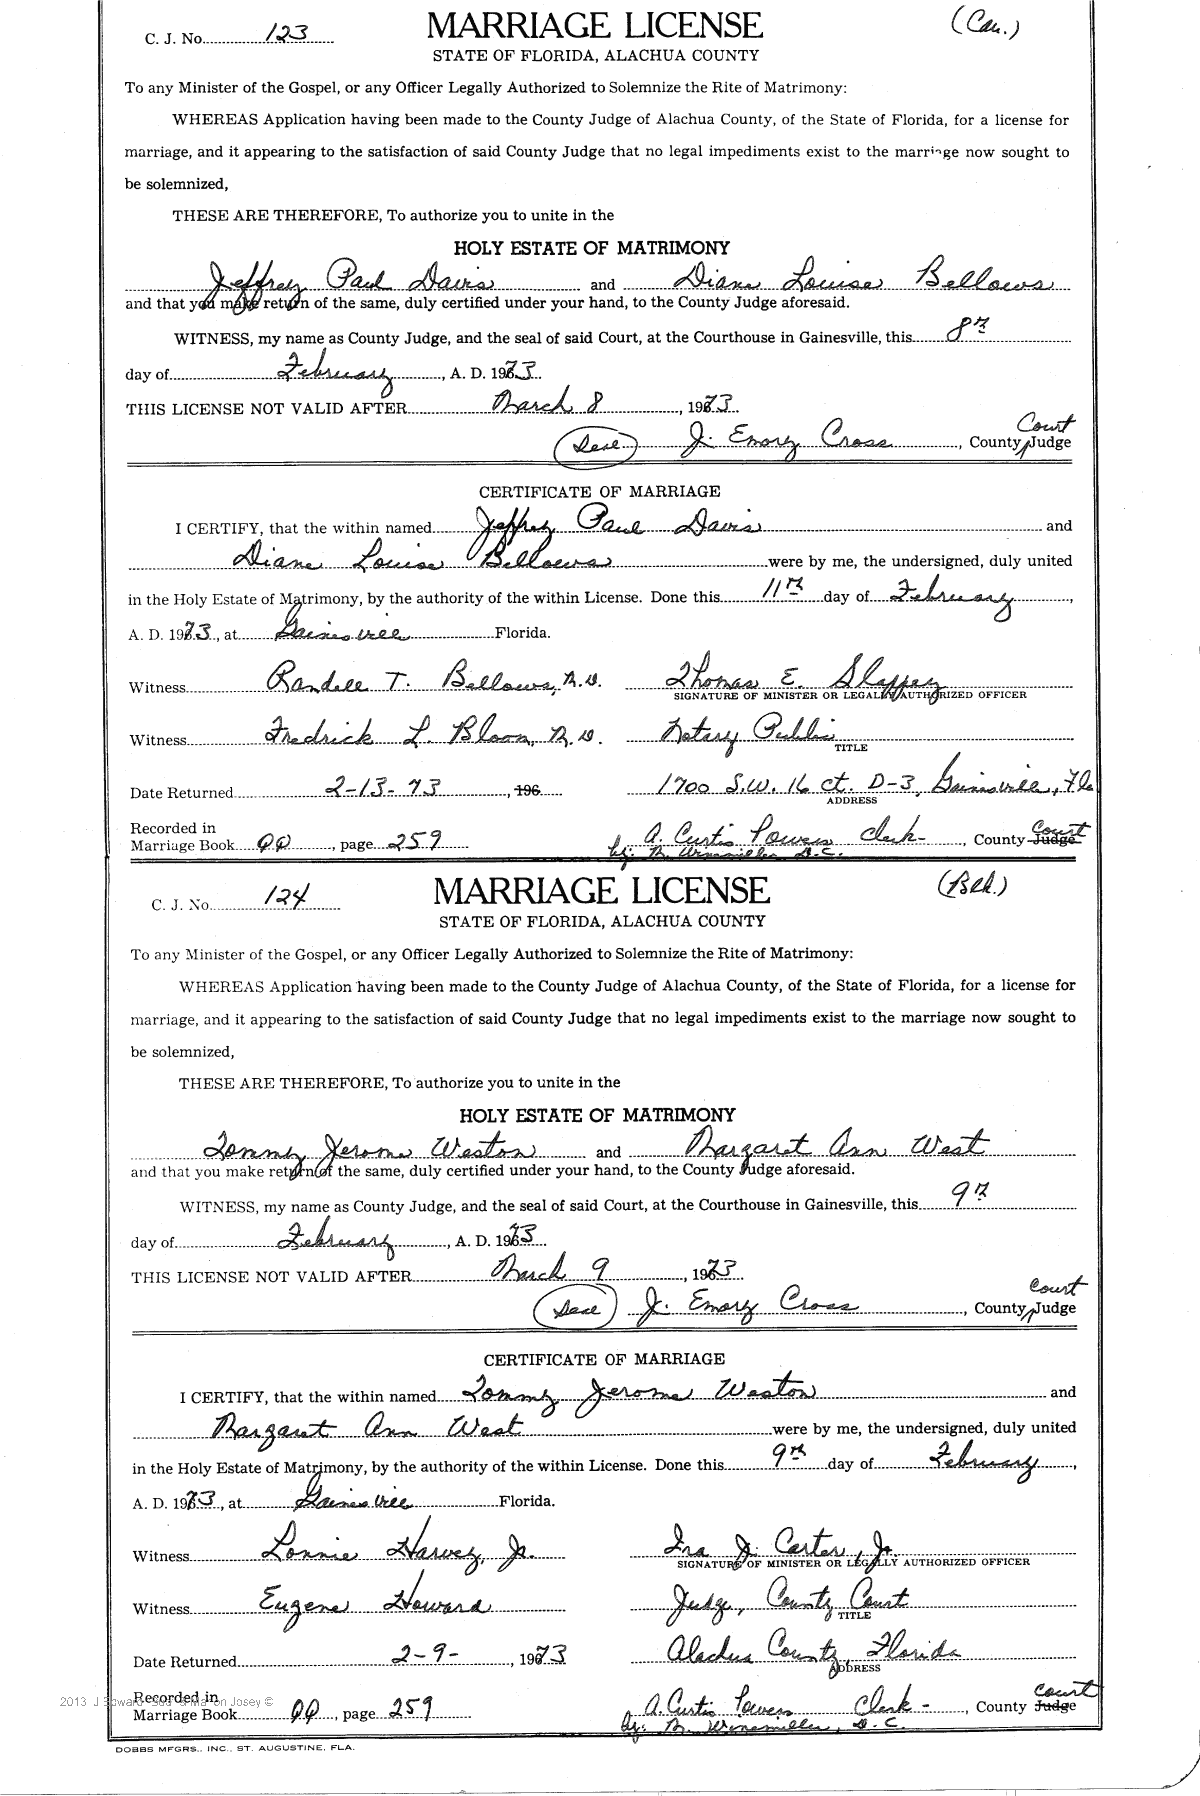 C. J. No. 123 MARRIAGE LICENSE (Cau.)
STATE OF FLORIDA, ALACHUA COUNTY
To any Minister of the Gospel, or any Officer Legally Authorized to Solemnize the Rite of Matrimony:
WHEREAS Application having been made to the County Judge of Alachua County, of the State of Florida, for a license for
marriage, and it appearing to the satisfaction of said County Judge that no legal impediments exist to the marriage now sought to
be solemnized,
THESE ARE THEREFORE, To authorize you to unite in the
HOLY ESTATE OF MATRIMONY
Jeffrey Paul Davis and Diane Louise Bellows
and that you make return of the same, duly certified under your hand, to the County Judge aforesaid.
WITNESS, my name as County Judge, and the seal of said Court, at the Courthouse in Gainesville, this 8th
day of February, A. D. 1973
THIS LICENSE NOT VALID AFTER March 8, 1973
(Seal) J. Emory Cross, County Court Judge
CERTIFICATE OF MARRIAGE
I CERTIFY, that the within named Jeffrey Paul Davis and
Diane Louise Bellows were by me, the undersigned, duly united
in the Holy Estate of Matrimony, by the authority of the within License. Done this 11th day of February,
A. D. 1973, at Gainesville Florida.
Witness Randell T. Bellows, M.D. Thomas E. Slappey
SIGNATURE OF MINISTER OR LEGALLY AUTHORIZED OFFICER
Witness Fredrick L. Bloom, M.D. Notary Public
TITLE
Date Returned 2-13-73, 196 1700 S.W. 16 ct. D-3, Gainesville, Fla
ADDRESS
Recorded in
Marriage Book QQ, page 259 A. Curtis Powers Clerk-, County Judge Court
by: M. Winsmiller D.C.
C. J. No. 124 MARRIAGE LICENSE (Blk.)
STATE OF FLORIDA, ALACHUA COUNTY
To any Minister of the Gospel, or any Officer Legally Authorized to Solemnize the Rite of Matrimony:
WHEREAS Application having been made to the County Judge of Alachua County, of the State of Florida, for a license for
marriage, and it appearing to the satisfaction of said County Judge that no legal impediments exist to the marriage now sought to
be solemnized,
THESE ARE THEREFORE, To authorize you to unite in the
HOLY ESTATE OF MATRIMONY
Tommy Jerome Weston and Margaret Ann West
and that you make return of the same, duly certified under your hand, to the County Judge aforesaid.
WITNESS, my name as County Judge, and the seal of said Court, at the Courthouse in Gainesville, this 9th
day of February, A. D. 1973
THIS LICENSE NOT VALID AFTER March 9, 1973
(Seal) J. Emory Cross, County Court Judge
CERTIFICATE OF MARRIAGE
I CERTIFY, that the within named Tommy Jerome Weston and
Margaret Ann West were by me, the undersigned, duly united
in the Holy Estate of Matrimony, by the authority of the within License. Done this 9th day of February,
A. D. 1973, at Gainesville Florida.
Witness Lonnie Harvey, Jr. Ira J. Carter, Jr.
SIGNATURE OF MINISTER OR LEGALLY AUTHORIZED OFFICER
Witness Eugene Howard Judge, County Court
TITLE
Date Returned 2-9-, 1973 Alachua County, Florida
ADDRESS
Recorded in
2013 J Edward Josey ©
Marriage Book QQ, page 259 A. Curtis Powers Clerk-, County Judge Court
by: M. Winsmiller, D.C.
DOBBS MFGRS., INC., ST. AUGUSTINE, FLA.